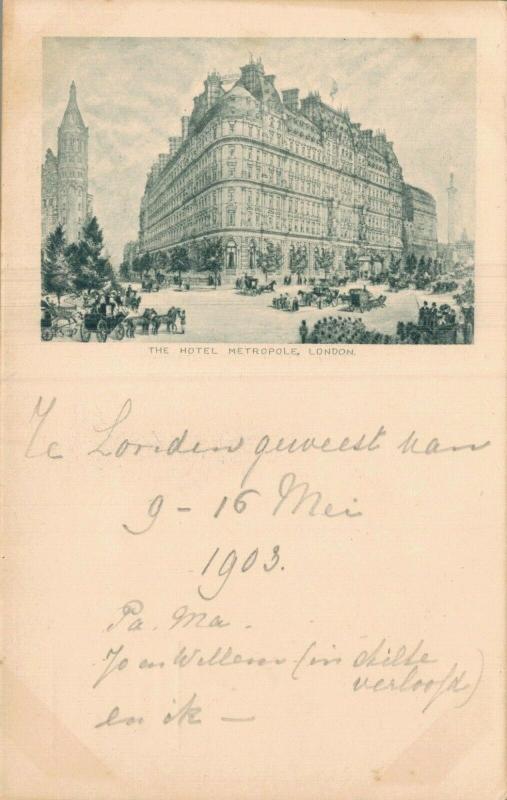 THE HOTEL METROPOLE, LONDON.
Te Londen geweest van
9 - 16 Mei
1903.
Pa. Ma.
Jo en Willem (in stilte
verloofd)
en ik —